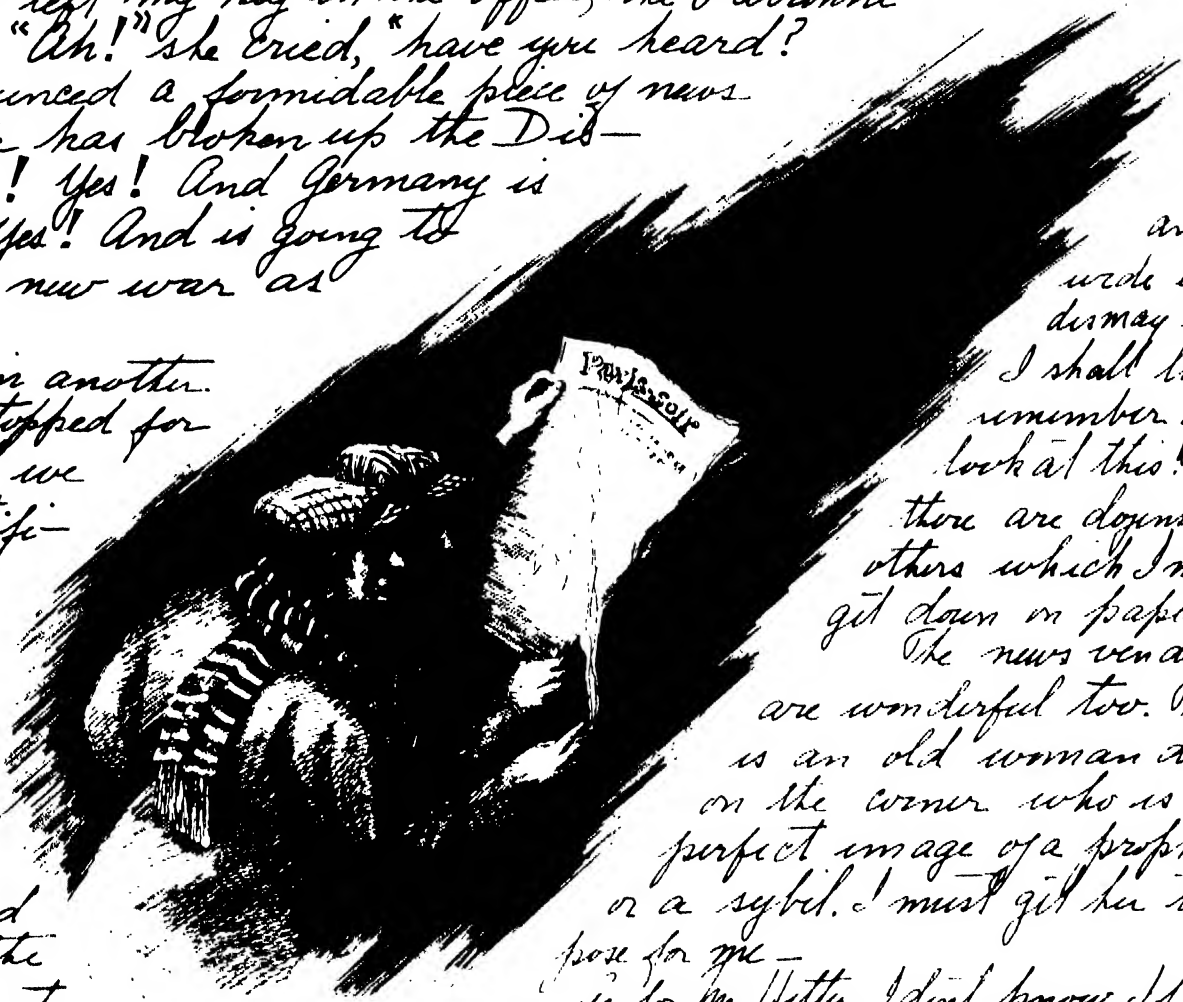 my key in the office, the
"Ah!" she cried, "have you heard?
unced a formidable piece of news
has broken up the Dis-
! Yes! And Germany is
Yes! And is going to
new war as
another.
topped for
we
ifi-
d
the
wide
dismay
I shall
remember
look at this!
there are dozens
others which I m
git down on pape
The news vend
are wonderful too.
is an old woman
on the corner who is
perfect image of a proph
or a sybil. I must git her
pose for me —
Paris-Soir